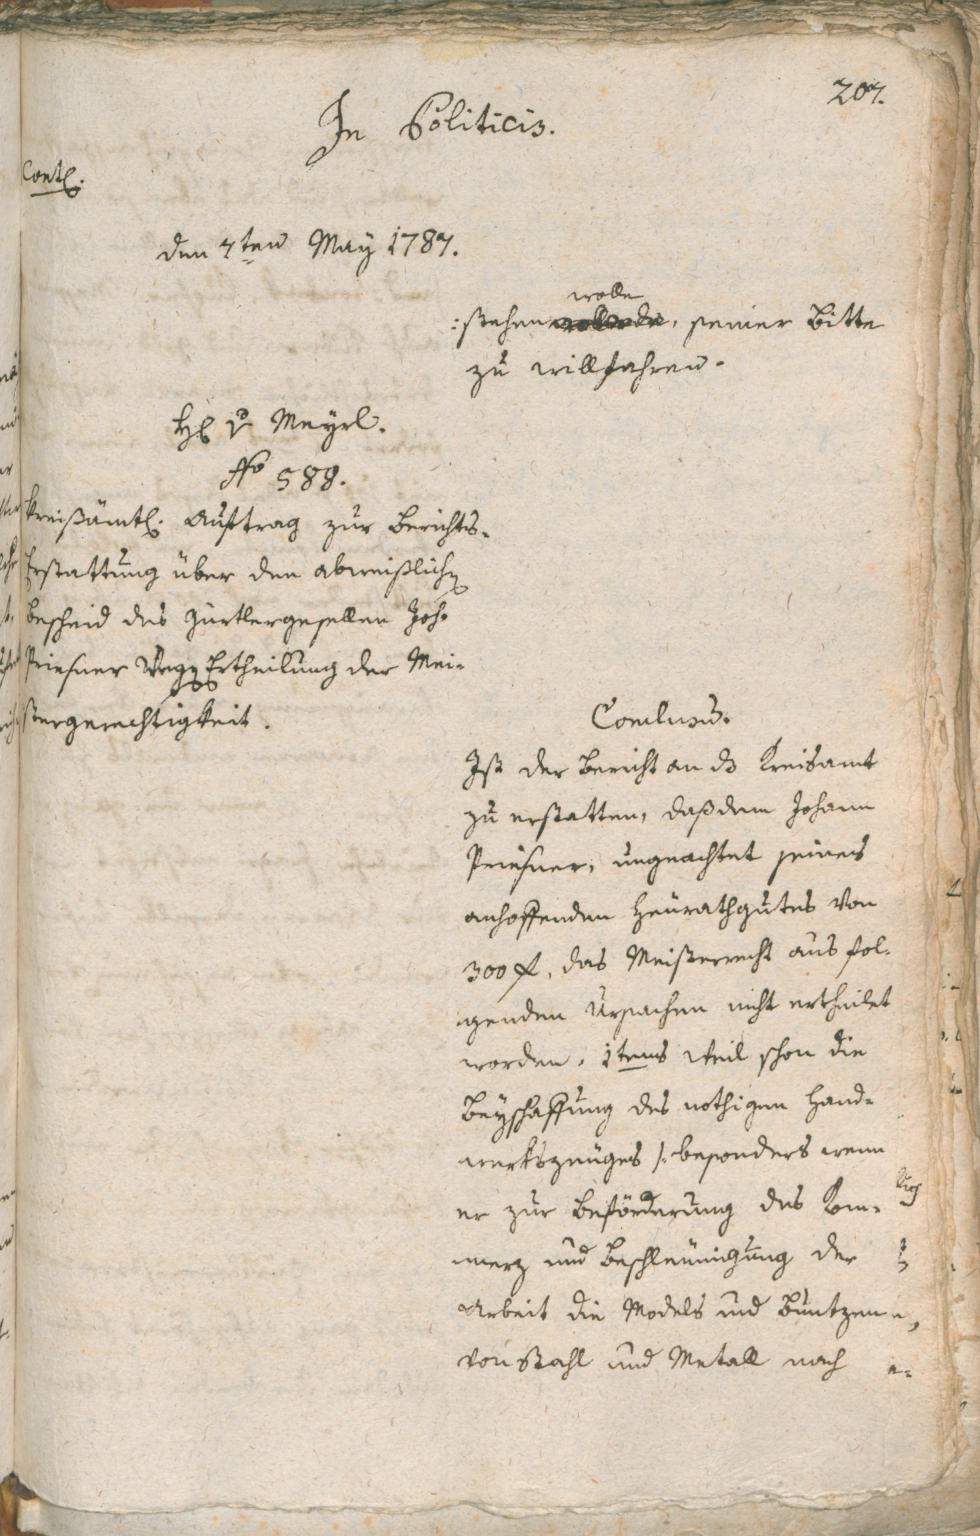 207.
In Politicis.
Contl.
den 7ten May 1787.
wolle
:stehen, seiner Bitte
zu willfahren.
H v Meyrl.
No 588.
Kreißämtl. Auftrag zur Berichts-
Erstattung über den abweißlich
Bescheid des Gürtlergesellen Joh.
Priesner Wegen Ertheilung der Mei-
stergerechtigkeit.
Conclusum.
Ist der Bericht an das Kreisamt
zu erstatten, daß dem Johann
Priesner, ungeachtet seines
anhoffenden Heurathgutes von
300 f, das Meisterrecht aus fol-
genden Ursachen nicht ertheilet
worden. 1tens Weil schon die
Beyschaffung des nothigen Hand-
werkszeuges /: besonders wenn
er zur Beförderung des Kom-
merz und Beschleunigung der
Arbeit die Models und Buntzen
von Stahl und Metall nach